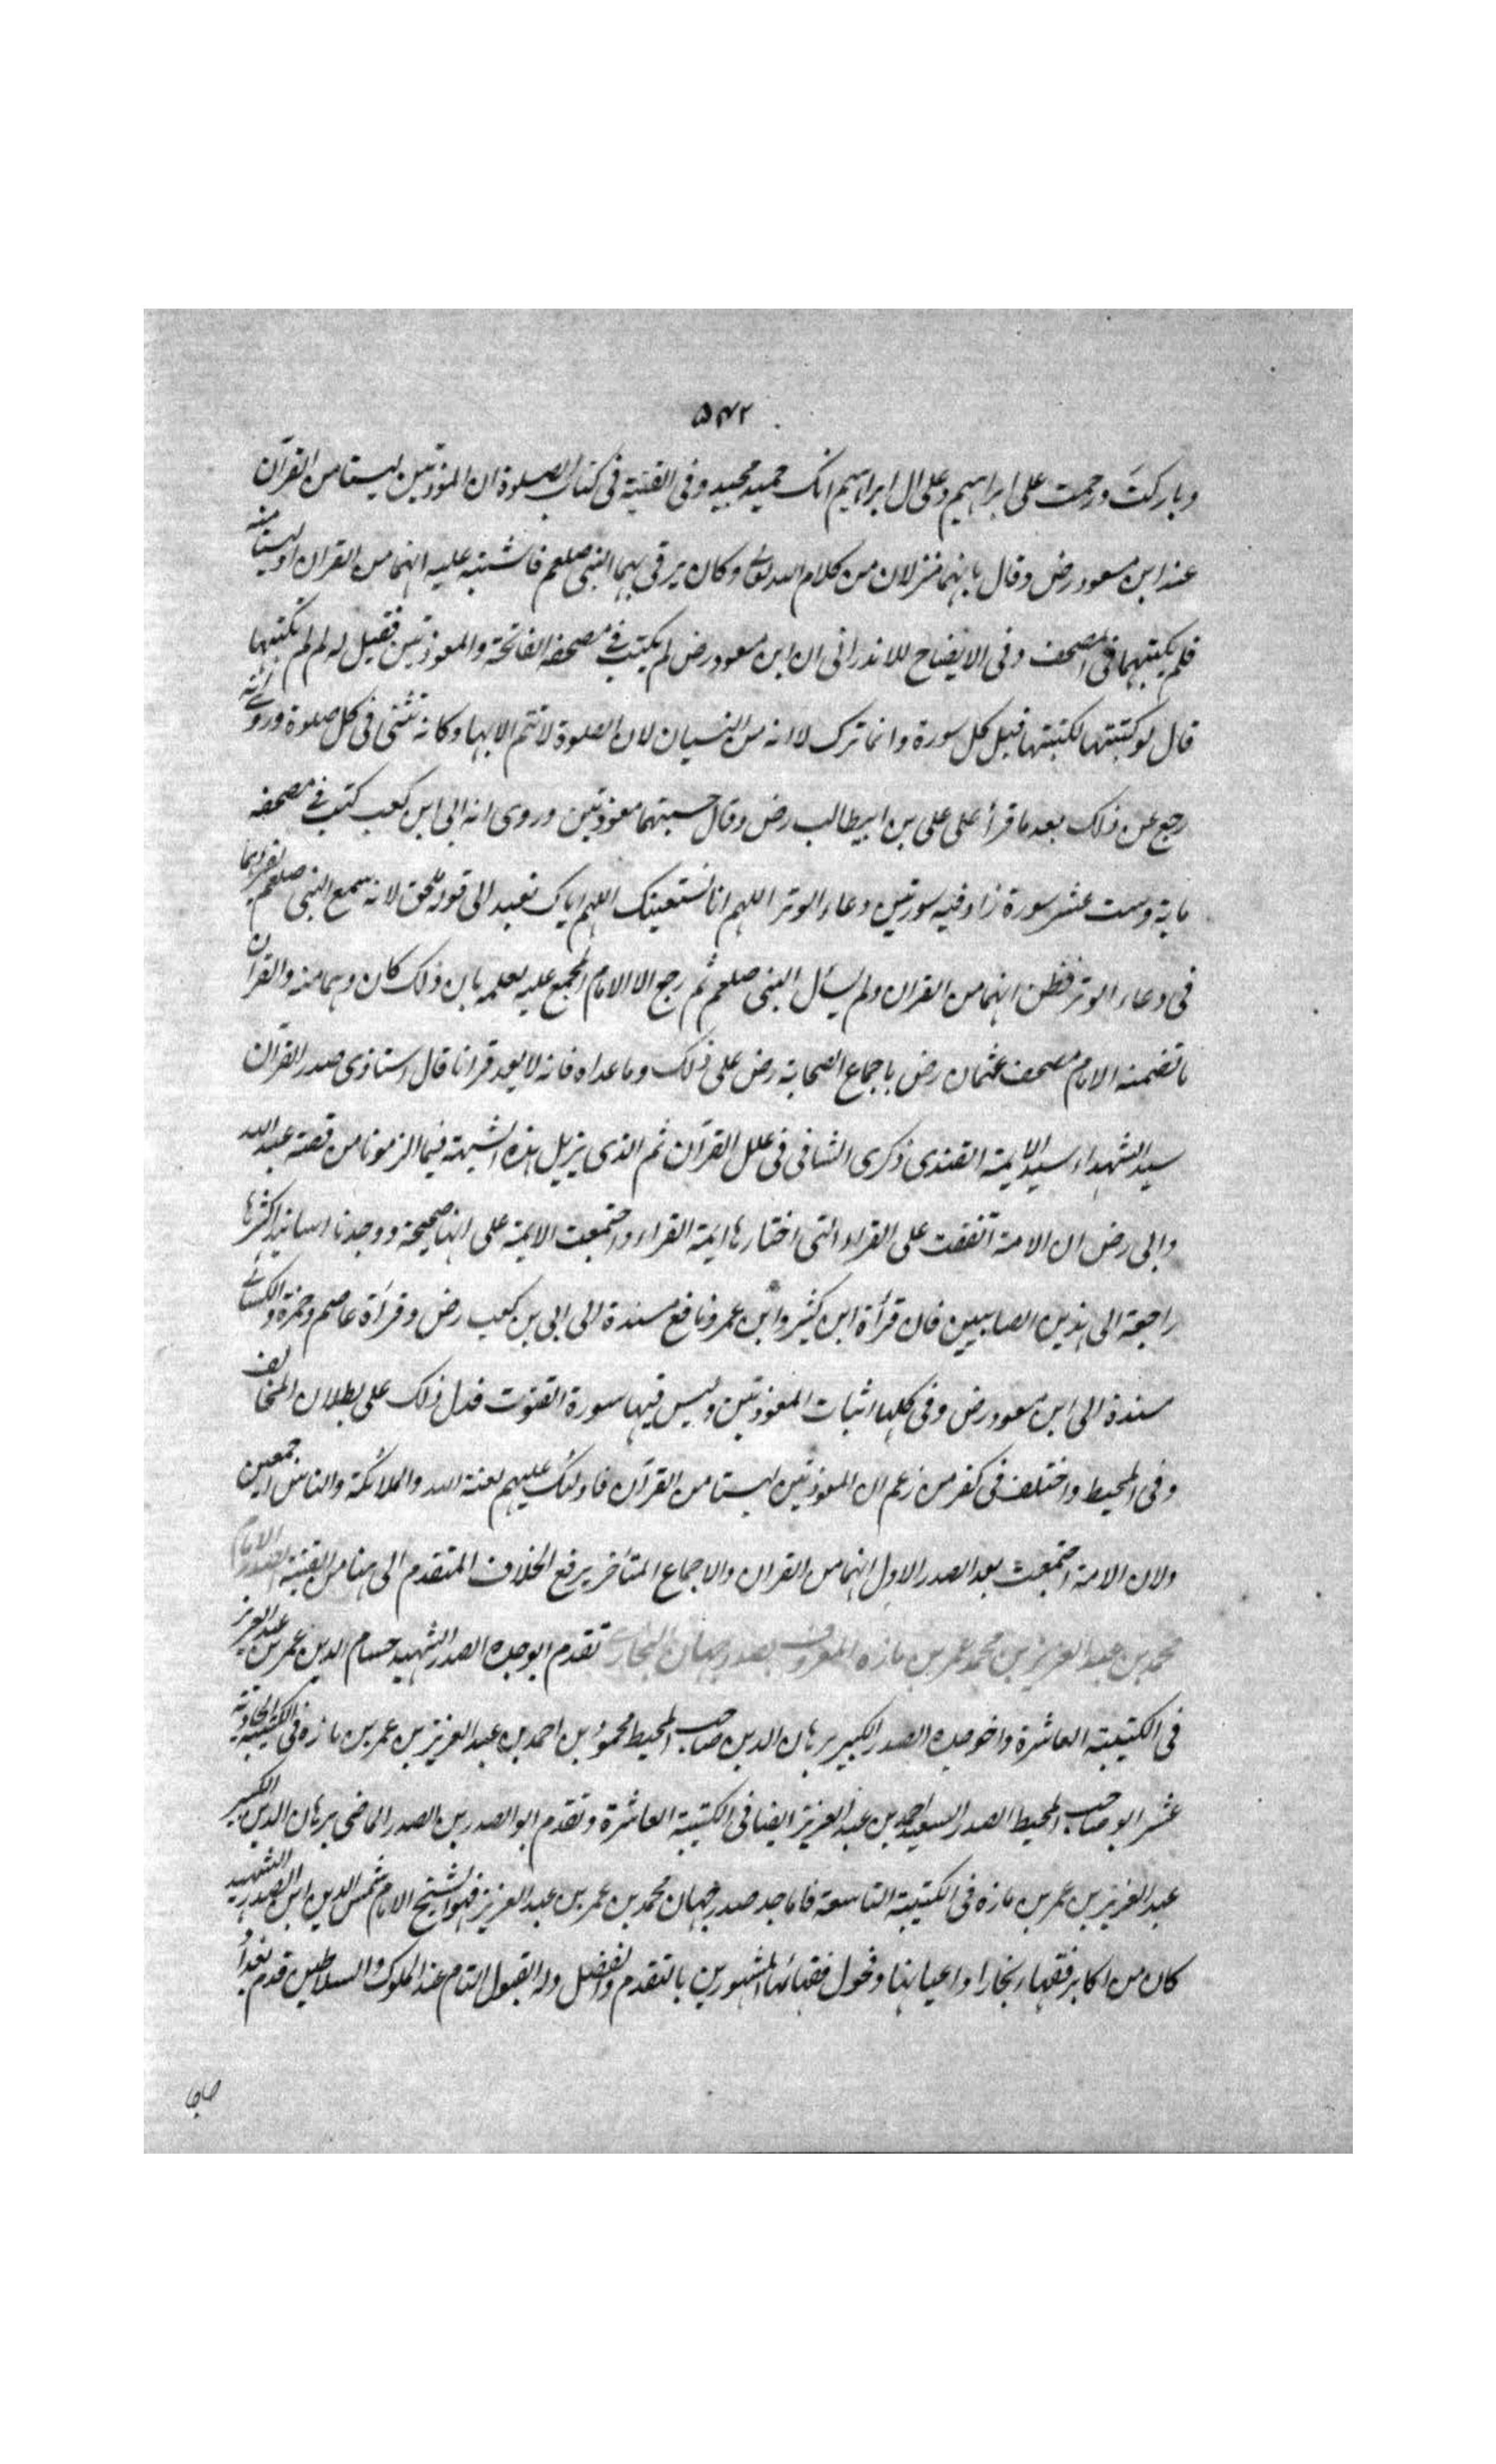 ٥٤٢
وباركت ورحمت على ابراهيم وعلى ال ابراهيم انك حميد مجيد وفى القنية فى كتاب الصلوة ان المعوذتين ليستا من القرآن
عند ابن مسعود رض وقال بانهما منزلان من كلام الله تعالى وكان يرقى بهما النبى صلعم فاشتبه عليه انهما من القران او ليستا منه
فلم يكتبهما فى المصحف وفى الايضاح للاندرانى ان ابن مسعود رض لم يكتب فے مصحفه الفاتحة والمعوذتين فقيل له لم لم تكتبها
قال لو كتبتها لكتبتها قبل كل سورة وانما ترك لانه من النسيان لان الصلوة لا تتم الا بها وكانه تثنى فى كل صلوة وروى انه
رجع عن ذلك بعد ما قرأ على على بن ابيطالب رض وقال حسبتهما معوذتين وروى انه ابى ابن كعب كتب فے مصحفه
ماية وست عشر سورة زاد فيه سورتين دعاء الوتر اللهم انا نستعينك اللهم اياك نعبد الى قوله ملحق لانه سمع النبى صلعم يقرأهما
فى دعاء الوتر فظن انهما من القران ولم يسأل النبى صلعم ثم رجع الا الامام المجمع عليه لعلمه بان ذلك كان وهما منه والقرآن
ما تضمنه الامام مصحف عثمان رض باجماع الصحابة رض على ذلك وما عداه فانه لا يعد قرانا قال استاذى صدر القرآن
سيد الشهداء سيد الايمة القندى ذكرى الشافى فى علل القرآن ثم الذى يزيل هذه الشبهة فيما الزمونا من قصة عبد الله
وابى رض ان الامة اتفقت على القراء التى اختارها ايمة القراء واجتمعت الايمة على انها صحيحة ووجدنا اسانيد اكثرها
راجعة الى هذين الصابيين فان قرأة ابن كثير وابن عمرو نافع مسندة الى ابى بن كعب رض وقرأة عاصم وحمزة والكسائے
مسندة الى ابن مسعود رض وفى كلها اثبات المعوذتين وليس فيها سورة القنوت فدل ذلك على بطلان المخالف
وفى المحيط واختلف فى كفر من زعم ان المعوذتين ليستا من القرآن فاولئك عليهم لعنة الله والملائكة والناس اجمعين
ولان الامة اجتمعت بعد الصدر الاول انهما من القران والاجماع المتأخر يرفع الخلاف المتقدم الى هنا من القنية الصدر الامام
محمد بن عبد العزيز بن محمد عمر بن مازه المعروف بصدر جهان البخارى تقدم ابو جده الصدر الشهيد حسام الدين عمر بن عبد العزيز
فى الكتيبة العاشرة واخو جده الصدر الكبير برهان الدين صاحب المحيط محمود بن احمد بن عبد العزيز بن عمر بن مازه فى الكتيبة الحادية
عشر ابو صاحب المحيط الصدر السعيد احمد بن عبد العزيز ايضا فى الكتيبة العاشرة وتقدم ابو الصدرين الصدر الماضى برهان الدين الكبير
عبد العزيز بن عمر بن مازه فى الكتيبة التاسعة فاما جد صدر جهان محمد بن عمر بن عبد العزيز فهو الشيخ الامام شمس الدين ابن الصدر الشهيد
كان من اكابر فقهاء بخارا واعيانها وفحول فقهائها المشهورين بالتقدم والفضل وله القبول التام عند الملوك والسلاطين قدم بغداد
حاجا